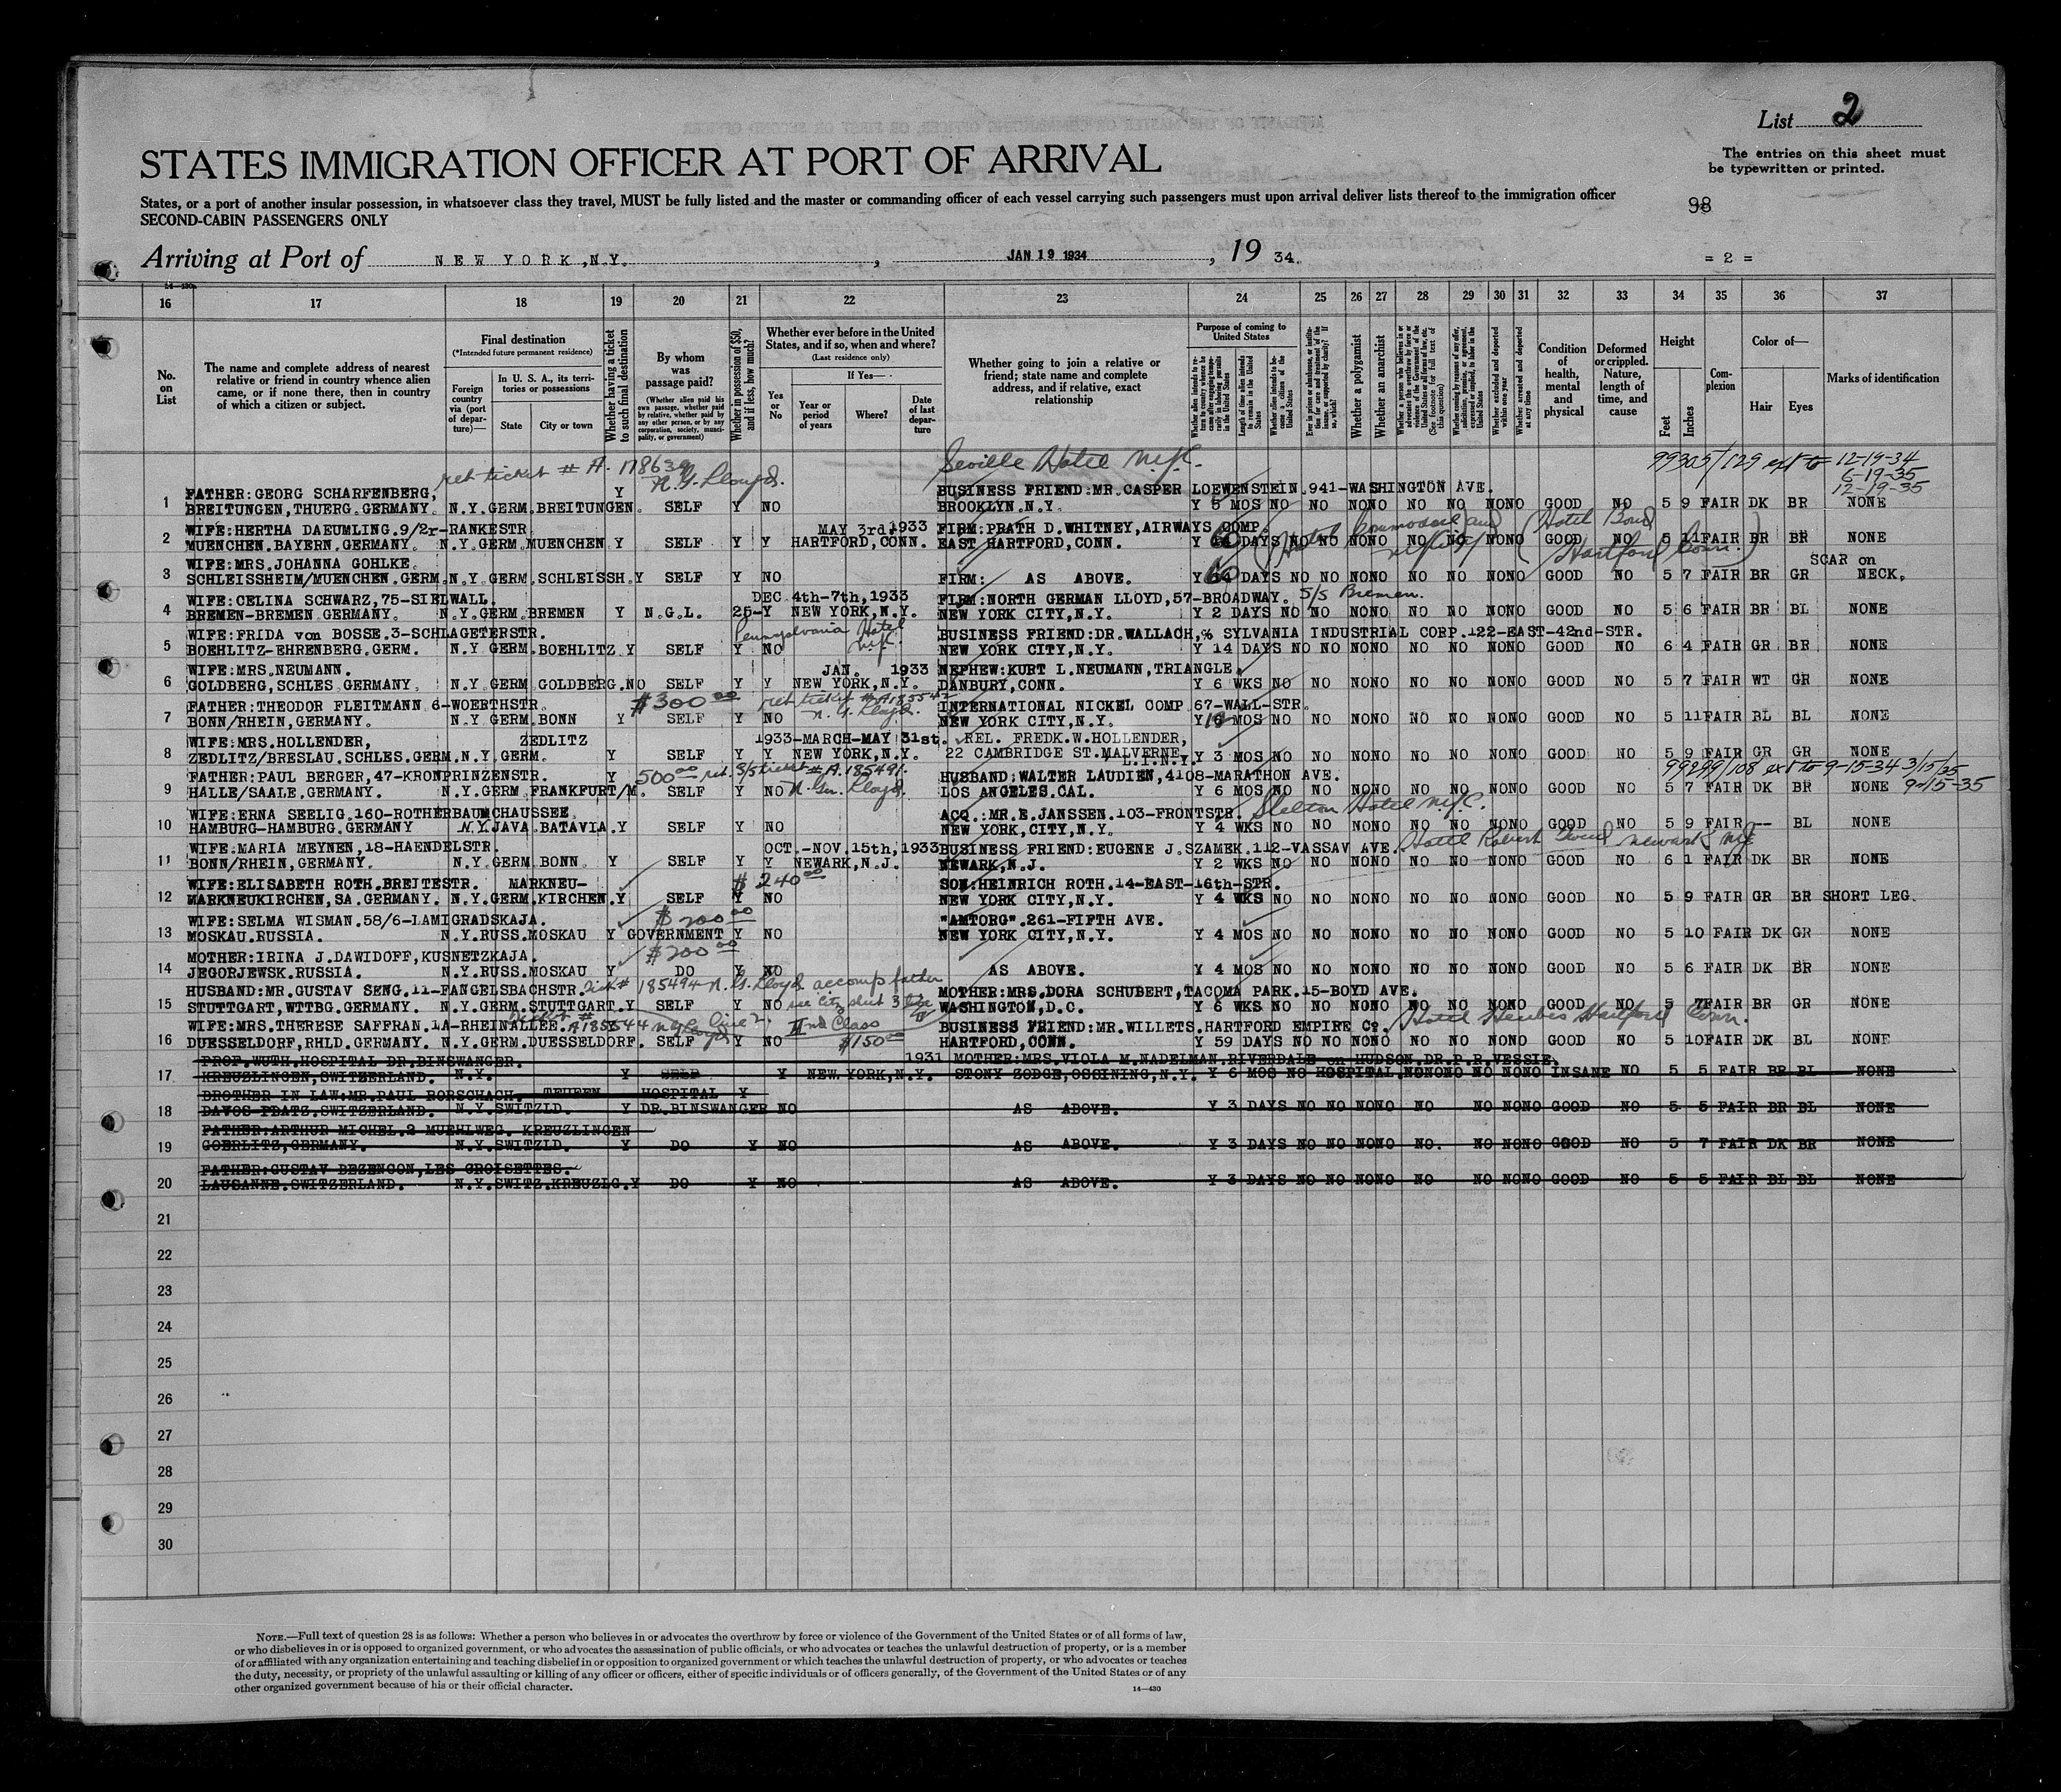 List 2
The entries on this sheet must
be typewritten or printed.
STATES IMMIGRATION OFFICER AT PORT OF ARRIVAL
States, or a port of another insular possession, in whatsoever class they travel, MUST be fully listed and the master or commanding officer of each vessel carrying such passengers must upon arrival deliver lists thereof to the immigration officer
SECOND-CABIN PASSENGERS ONLY
98
Arriving at Port of NEW YORK, N.Y. , JAN 19 1934 , 19 34. = 2 =
16 17 18 19 20 21 22 23 24 25 26 27 28 29 30 31 32 33 34 35 36 37
No. on List
The name and complete address of nearest relative or friend in country whence alien came, or if none there, then in country of which a citizen or subject.
Final destination
(*Intended future permanent residence)
Foreign country via (port of departure)—
In U. S. A., its territories or possessions
State City or town
Whether having a ticket to such final destination
By whom was passage paid?
(Whether alien paid his own passage, whether paid by relative, whether paid by any other person, or by any corporation, society, municipality, or government)
Whether in possession of $50, and if less, how much?
Whether ever before in the United States, and if so, when and where?
(Last residence only)
Yes or No
If Yes—
Year or period of years
Where?
Date of last departure
Whether going to join a relative or friend; state name and complete address, and if relative, exact relationship
Purpose of coming to United States
Length of time alien intends to remain in the United States
Whether a polygamist
Whether an anarchist
Whether excluded and deported within one year
Whether arrested and deported at any time
Condition of health, mental and physical
Deformed or crippled. Nature, length of time, and cause
Height
Feet Inches
Complexion
Color of—
Hair Eyes
Marks of identification
ret ticket # A. 178639 N.G. Lloyd. Seville Hotel N.Y.C. 99305/129 ext to 12-19-34
6-19-35
12-19-35
FATHER:GEORG SCHARFENBERG, Y BUSINESS FRIEND:MR.CASPER LOEWENSTEIN.941-WASHINGTON AVE.
1 BREITUNGEN,THUERG.GERMANY. N.Y.GERM.BREITUNGEN. SELF Y NO BROOKLYN.N.Y. Y 5 MOS NO NO NONO NO NO NONO GOOD NO 5 9 FAIR DK BR NONE
WIFE:HERTHA DAEUMLING.9/2r-RANKESTR. MAY 3rd,1933 FIRM:PRATH D.WHITNEY,AIRWAYS COMP.
2 MUENCHEN.BAYERN.GERMANY. N.Y.GERM.MUENCHEN Y SELF Y Y HARTFORD,CONN. EAST HARTFORD,CONN. Y 60 DAYS NO NO NONO NO NO NONO GOOD NO 5 11 FAIR BR BR NONE
(Hotel Commodore and (Hotel Bond
Hartford Conn.)
WIFE:MRS.JOHANNA GOHLKE. SCAR on
3 SCHLEISSHEIM/MUENCHEN.GERM.N.Y.GERM.SCHLEISSH.Y SELF Y NO FIRM: AS ABOVE. Y 60 DAYS NO NO NONO NO NO NONO GOOD NO 5 7 FAIR BR GR NECK.
WIFE:CELINA SCHWARZ,75-SIELWALL. DEC.4th-7th,1933 FIRM:NORTH GERMAN LLOYD,57-BROADWAY. S/S Bremen.
4 BREMEN-BREMEN GERMANY. N.Y.GERM.BREMEN Y N.G.L. 25-Y NEW YORK,N.Y. NEW YORK CITY,N.Y. Y 2 DAYS NO NO NONO NO NO NONO GOOD NO 5 6 FAIR BR BL NONE
WIFE:FRIDA von BOSSE.3-SCHLAGETERSTR. Pennsylvania Hotel N.Y. BUSINESS FRIEND:DR.WALLACH,% SYLVANIA INDUSTRIAL CORP.122-EAST-42nd-STR.
5 BOEHLITZ-EHRENBERG.GERM. N.Y GERM.BOEHLITZ Y SELF Y NO NEW YORK CITY,N.Y. Y 14 DAYS NO NO NONO NO NO NONO GOOD NO 6 4 FAIR GR BR NONE
WIFE:MRS.NEUMANN. JAN. 1933 NEPHEW:KURT L.NEUMANN,TRIANGLE.
6 GOLDBERG,SCHLES GERMANY. N.Y.GERM.GOLDBERG.NO SELF Y Y NEW YORK,N.Y. DANBURY,CONN. Y 6 WKS NO NO NONO NO NO NONO GOOD NO 5 7 FAIR WT GR NONE
FATHER:THEODOR FLEITMANN 6-WOERTHSTR. $300.00 ret ticket N.G. Lloyd. INTERNATIONAL NICKEL COMP 67-WALL-STR.
7 BONN/RHEIN,GERMANY. N.Y GERM.BONN Y SELF Y NO NEW YORK CITY,N.Y. Y MOS NO NO NONO NO NO NONO GOOD NO 5 11 FAIR BL BL NONE
WIFE:MRS.HOLLENDER, ZEDLITZ 1933-MARCH-MAY 31st. REL. FREDK.W.HOLLENDER,
8 ZEDLITZ/BRESLAU.SCHLES.GERM.N.Y.GERM. Y SELF Y Y NEW YORK,N.Y. 22 CAMBRIDGE ST.MALVERNE L.I.N.Y. Y 3 MOS NO NO NONO NO NO NONO GOOD NO 5 9 FAIR GR GR NONE
99299/108 ext to 9-15-34 3/15/35
FATHER:PAUL BERGER,47-KRONPRINZENSTR. Y 500.00 ret. S/S ticket # A.185491. N. Ger. Lloyd. HUSBAND:WALTER LAUDIEN,4108-MARATHON AVE.
9 HALLE/SAALE,GERMANY. N.Y.GERM.FRANKFURT/M. SELF Y NO LOS ANGELES.CAL. Y 6 MOS NO NO NONO NO NO NONO GOOD NO 5 7 FAIR DK BR NONE 9-15-35
WIFE:ERNA SEELIG.160-ROTHERBAUMCHAUSSEE. ACQ.:MR.E.JANSSEN.103-FRONTSTR. Shelton Hotel N.Y.C.
10 HAMBURG-HAMBURG.GERMANY N.Y.JAVA.BATAVIA.Y SELF Y NO NEW YORK,CITY,N.Y. Y 4 WKS NO NO NONO NO NO NONO GOOD NO 5 9 FAIR -- BL NONE
WIFE:MARIA MEYNEN,18-HAENDELSTR. OCT.-NOV.15th,1933 BUSINESS FRIEND:EUGENE J.SZAMEK.112-VASSAV AVE. Hotel Robert Treat Newark NJ
11 BONN/RHEIN,GERMANY. N.Y.GERM.BONN. Y SELF Y Y NEWARK,N.J. NEWARK,N.J. Y 2 WKS NO NO NONO NO NO NONO GOOD NO 6 1 FAIR DK BR NONE
WIFE:ELISABETH ROTH.BREITESTR. MARKNEU- $240.00 SON:HEINRICH ROTH.14-EAST-16th-STR.
12 MARKNEUKIRCHEN,SA.GERMANY. N.Y.GERM.KIRCHEN.Y SELF Y NO NEW YORK CITY,N.Y. Y 4 WKS NO NO NONO NO NO NONO GOOD NO 5 9 FAIR GR BR SHORT LEG.
WIFE:SELMA WISMAN.58/6-LAMIGRADSKAJA. $200.00 "AMTORG".261-FIFTH AVE.
13 MOSKAU.RUSSIA. N.Y.RUSS.MOSKAU Y GOVERNMENT Y NO NEW YORK CITY,N.Y. Y 4 MOS NO NO NONO NO NO NONO GOOD NO 5 10 FAIR DK GR NONE
MOTHER:IRINA J.DAWIDOFF,KUSNETZKAJA. $200.00
14 JEGORJEWSK.RUSSIA. N.Y.RUSS.MOSKAU Y DO Y NO AS ABOVE. Y 4 MOS NO NO NONO NO NO NONO GOOD NO 5 6 FAIR DK BR NONE
HUSBAND:MR.GUSTAV SENG.11-FANGELSBACHSTR. 185494 N.G. Lloyd accomp father MOTHER:MRS.DORA SCHUBERT,TACOMA PARK.15-BOYD AVE.
15 STUTTGART,WTTBG.GERMANY. N.Y.GERM.STUTTGART.Y SELF Y NO WASHINGTON,D.C. Y 6 WKS NO NO NONO NO NO NONO GOOD NO 5 7 FAIR BR GR NONE
WIFE:MRS.THERESE SAFFRAN.1A-RHEINALLEE. II nd Class $150.00 BUSINESS FRIEND:MR.WILLETS.HARTFORD EMPIRE Co. Hotel Heublein Hartford Conn.
16 DUESSELDORF,RHLD.GERMANY. N.Y.GERM.DUESSELDORF. SELF Y NO HARTFORD,CONN. Y 59 DAYS NO NO NONO NO NO NONO GOOD NO 5 10 FAIR DK BL NONE
PROF.WUTH.HOSPITAL DR.BINSWANGER. 1931 MOTHER:MRS.VIOLA M.NADELMAN.RIVERDALE on HUDSON.DR.P.R.VESSIE.
17 KREUZLINGEN,SWITZERLAND. N.Y. Y SELF Y NEW.YORK,N.Y. STONY LODGE,OSSINING,N.Y. Y 6 MOS NO HOSPITAL.NONONO NO NONO INSANE NO 5 5 FAIR BR BL NONE
BROTHER IN LAW:MR.PAUL RORSCHACH. TEUFEN HOSPITAL Y
18 DAVOS PLATZ.SWITZERLAND. N.Y.SWITZLD. Y DR.BINSWANGER NO AS ABOVE. Y 3 DAYS NO NO NONO NO NO NONO GOOD NO 5 5 FAIR BR BL NONE
FATHER:ARTHUR MICHEL.2 MUEHLWEG. KREUZLINGEN
19 GOERLITZ,GERMANY. N.Y.SWITZLD. Y DO Y NO AS ABOVE. Y 3 DAYS NO NO NONO NO. NO NONO GOOD NO 5 7 FAIR DK BR NONE
FATHER:GUSTAV BEZENCON,LES CROISETTES.
20 LAUSANNE.SWITZERLAND. N.Y.SWITZ.KREUZLG.Y DO Y NO AS ABOVE. Y 3 DAYS NO NO NONO NO NO NONO GOOD NO 5 5 FAIR BL BL NONE
21
22
23
24
25
26
27
28
29
30
NOTE.—Full text of question 28 is as follows: Whether a person who believes in or advocates the overthrow by force or violence of the Government of the United States or of all forms of law,
or who disbelieves in or is opposed to organized government, or who advocates the assassination of public officials, or who advocates or teaches the unlawful destruction of property, or is a member
of or affiliated with any organization entertaining and teaching disbelief in or opposition to organized government or which teaches the unlawful destruction of property, or who advocates or teaches
the duty, necessity, or propriety of the unlawful assaulting or killing of any officer or officers, either of specific individuals or of officers generally, of the Government of the United States or of any
other organized government because of his or their official character.
14—430